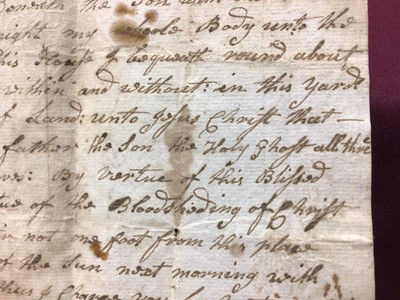 beneath the Son
right my whole Body unto the
this House I bequeath round about
within and without: in this Yards
of Land: unto Jesus Christ that —
father the Son the Holy Ghost all thre
By Vertue of this Blessed
tue of the Bloodsheding of Christ
in not one foot from this place
of the Sun next morning with
thus I Charge you